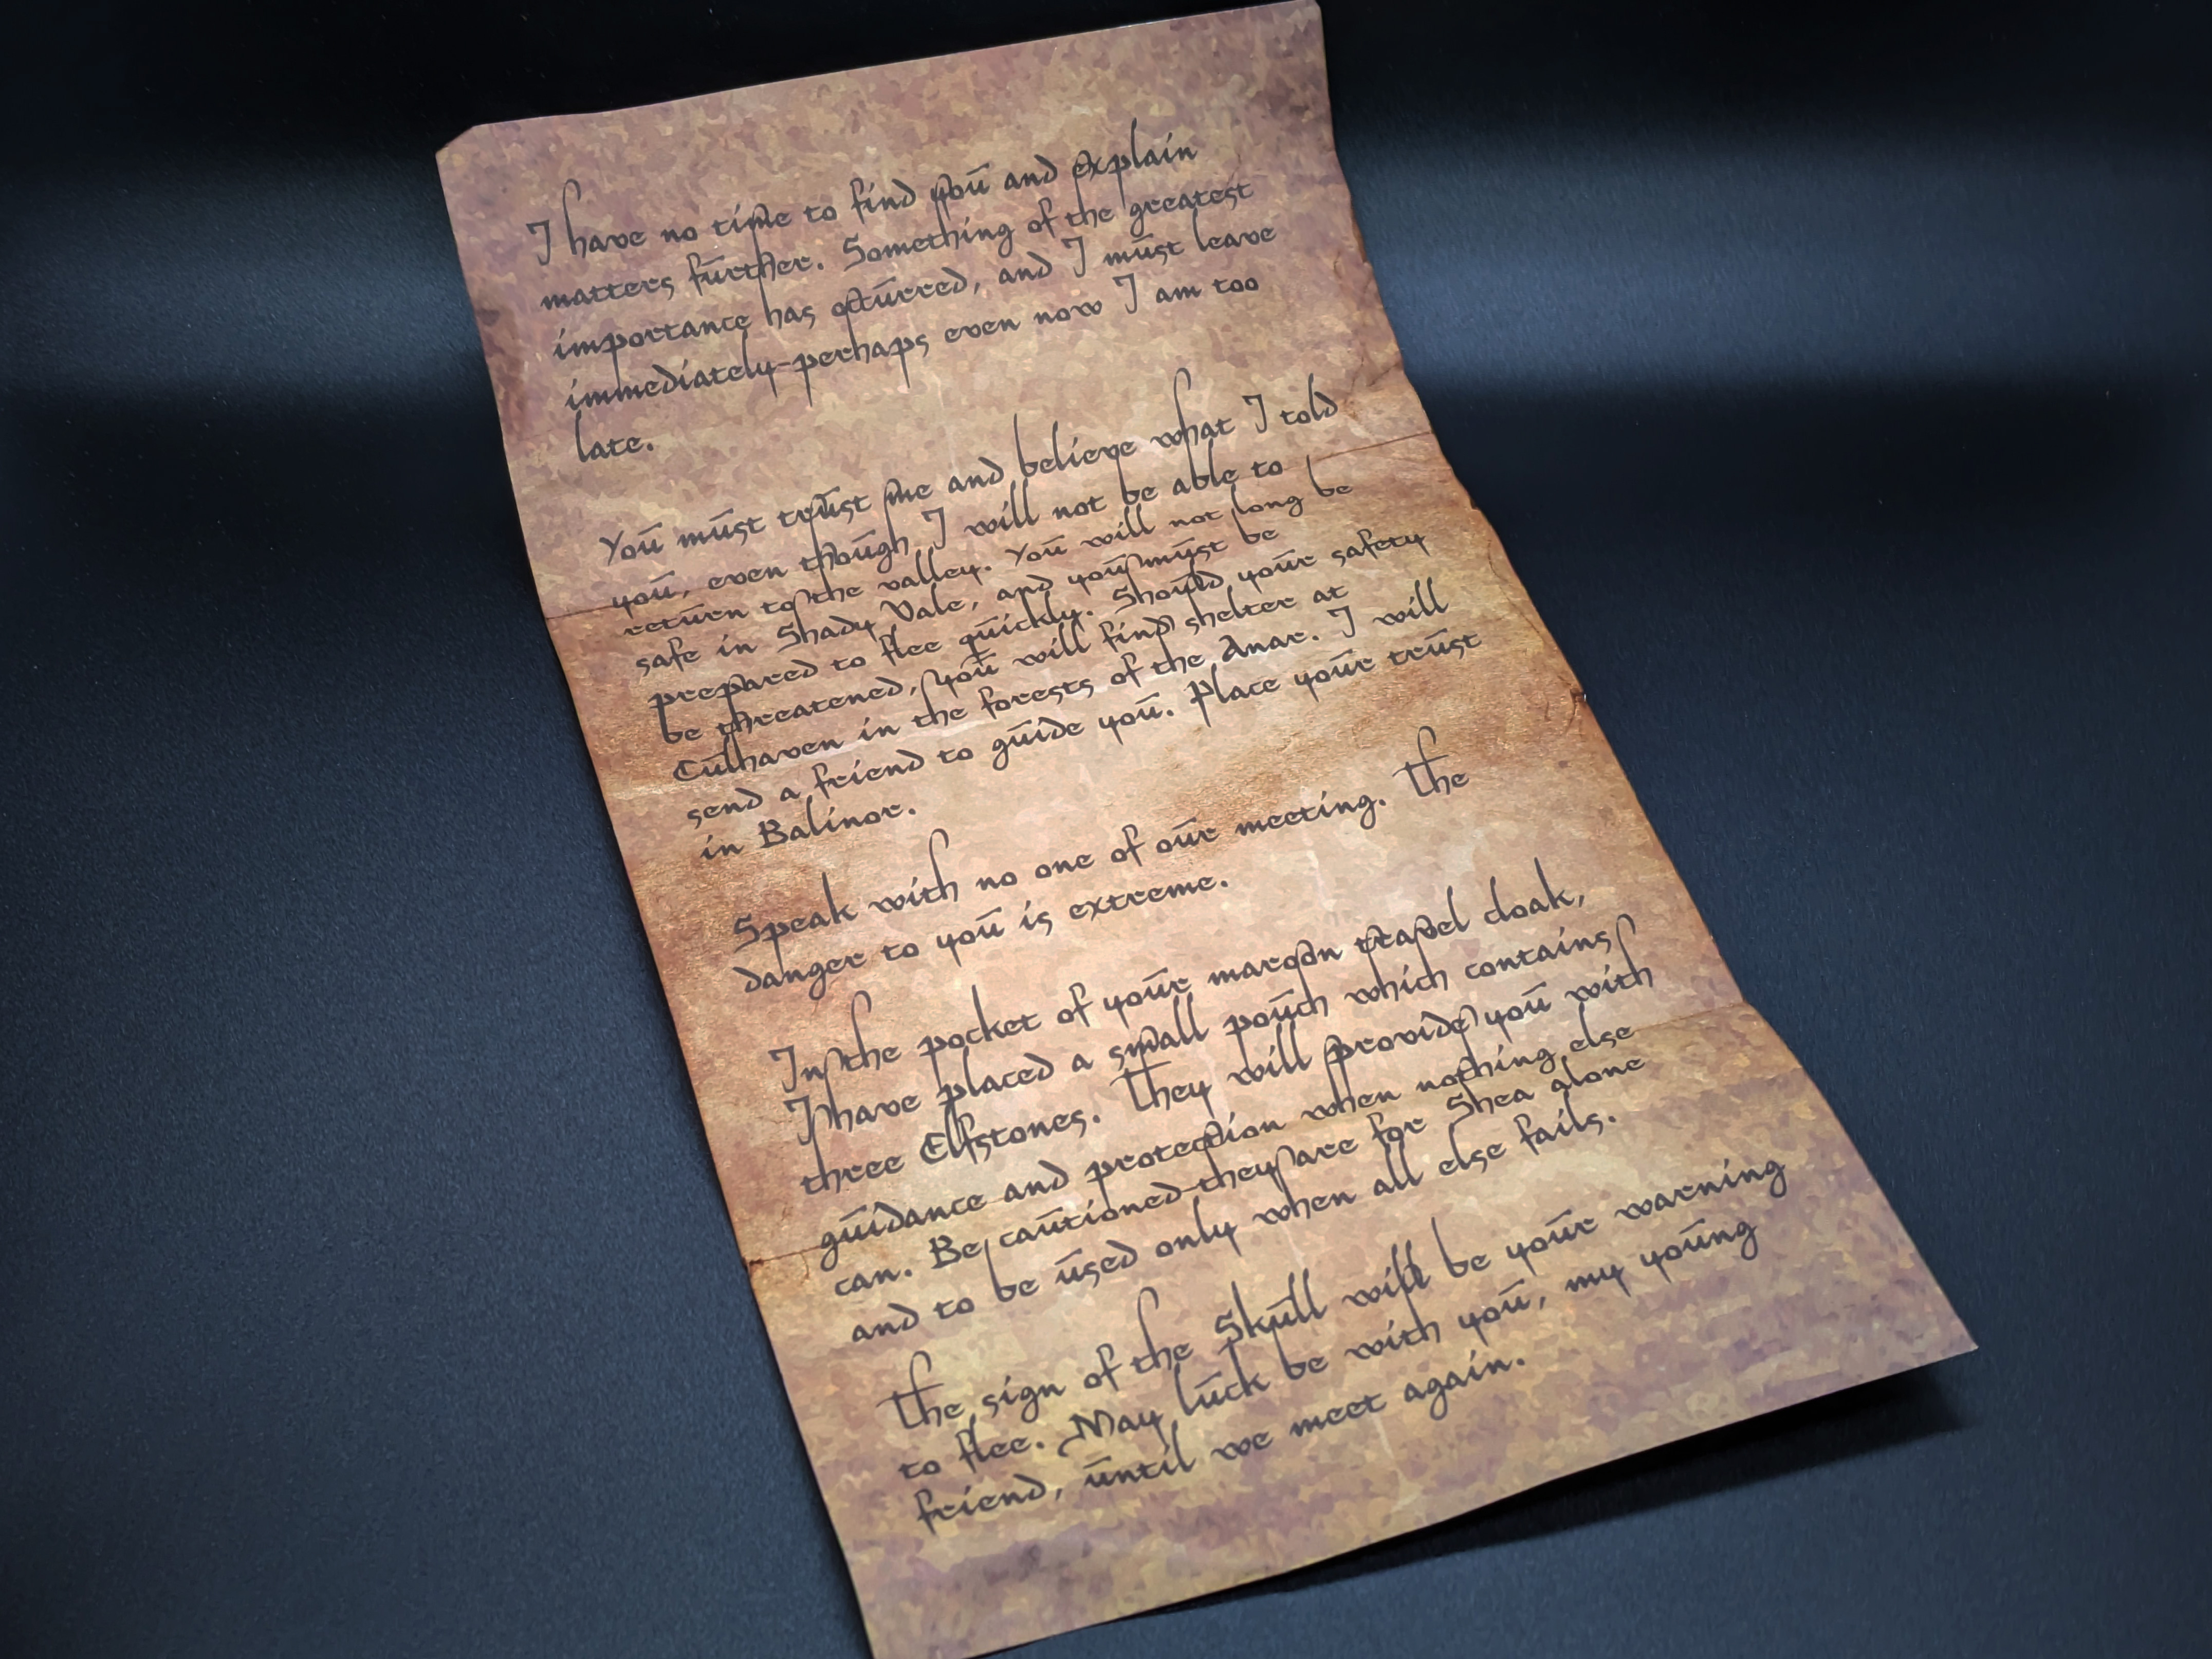 I have no time to find you and explain
matters further. Something of the greatest
importance has occurred, and I must leave
immediately-perhaps even now I am too
late.
You must trust me and believe what I told
you, even though I will not be able to
return to the valley. You will not long be
safe in Shady Vale, and you must be
prepared to flee quickly. Should your safety
be threatened, you will find shelter at
Culhaven in the forests of the Anar. I will
send a friend to guide you. Place your trust
in Balinor.
Speak with no one of our meeting. The
danger to you is extreme.
In the pocket of your maroon travel cloak,
I have placed a small pouch which contains
three Elfstones. They will provide you with
guidance and protection when nothing else
can. Be cautioned-they are for Shea alone
and to be used only when all else fails.
The sign of the Skull will be your warning
to flee. May luck be with you, my young
friend, until we meet again.